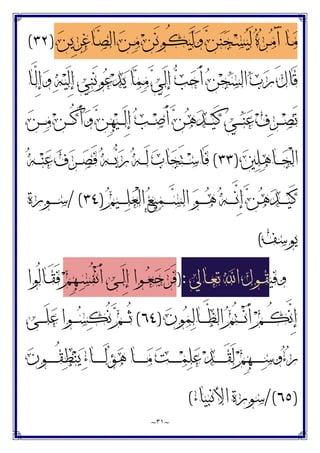 مَآ ءَامُرُهُۥ لَيُسْجَنَنَّ وَلَيَكُونًا مِّنَ الصَّاغِرِينَ (٣٢)
قَالَ رَبِّ السِّجْنُ أَحَبُّ إِلَيَّ مِمَّا يَدْعُونَنِي إِلَيْهِ وَإِلَّا
تَصْرِفْ عَنِّي كَيْدَهُنَّ أَصْبُ إِلَيْهِنَّ وَأَكُن مِّنَ
الْجَاهِلِينَ (٣٣) فَاسْتَجَابَ لَهُ رَبُّهُ فَصَرَفَ عَنْهُ
كَيْدَهُنَّ إِنَّهُ هُوَ السَّمِيعُ الْعَلِيمُ (٣٤) /سورة
يوسف)
وقيقول الله تعالى :(فَرَجَعُوا إِلَى أَنْفُسِهِمْ فَقَالُوا
إِنَّكُمْ أَنْتُمُ الظَّالِمُونَ (٦٤) ثُمَّ نُكِسُوا عَلَى
رءُوسِهِمْ لَقَدْ عَلِمْتَ مَا هَؤُلَاءِ يَنْطِقُونَ
(٦٥) /سورة الأنبياء)
~٣١~